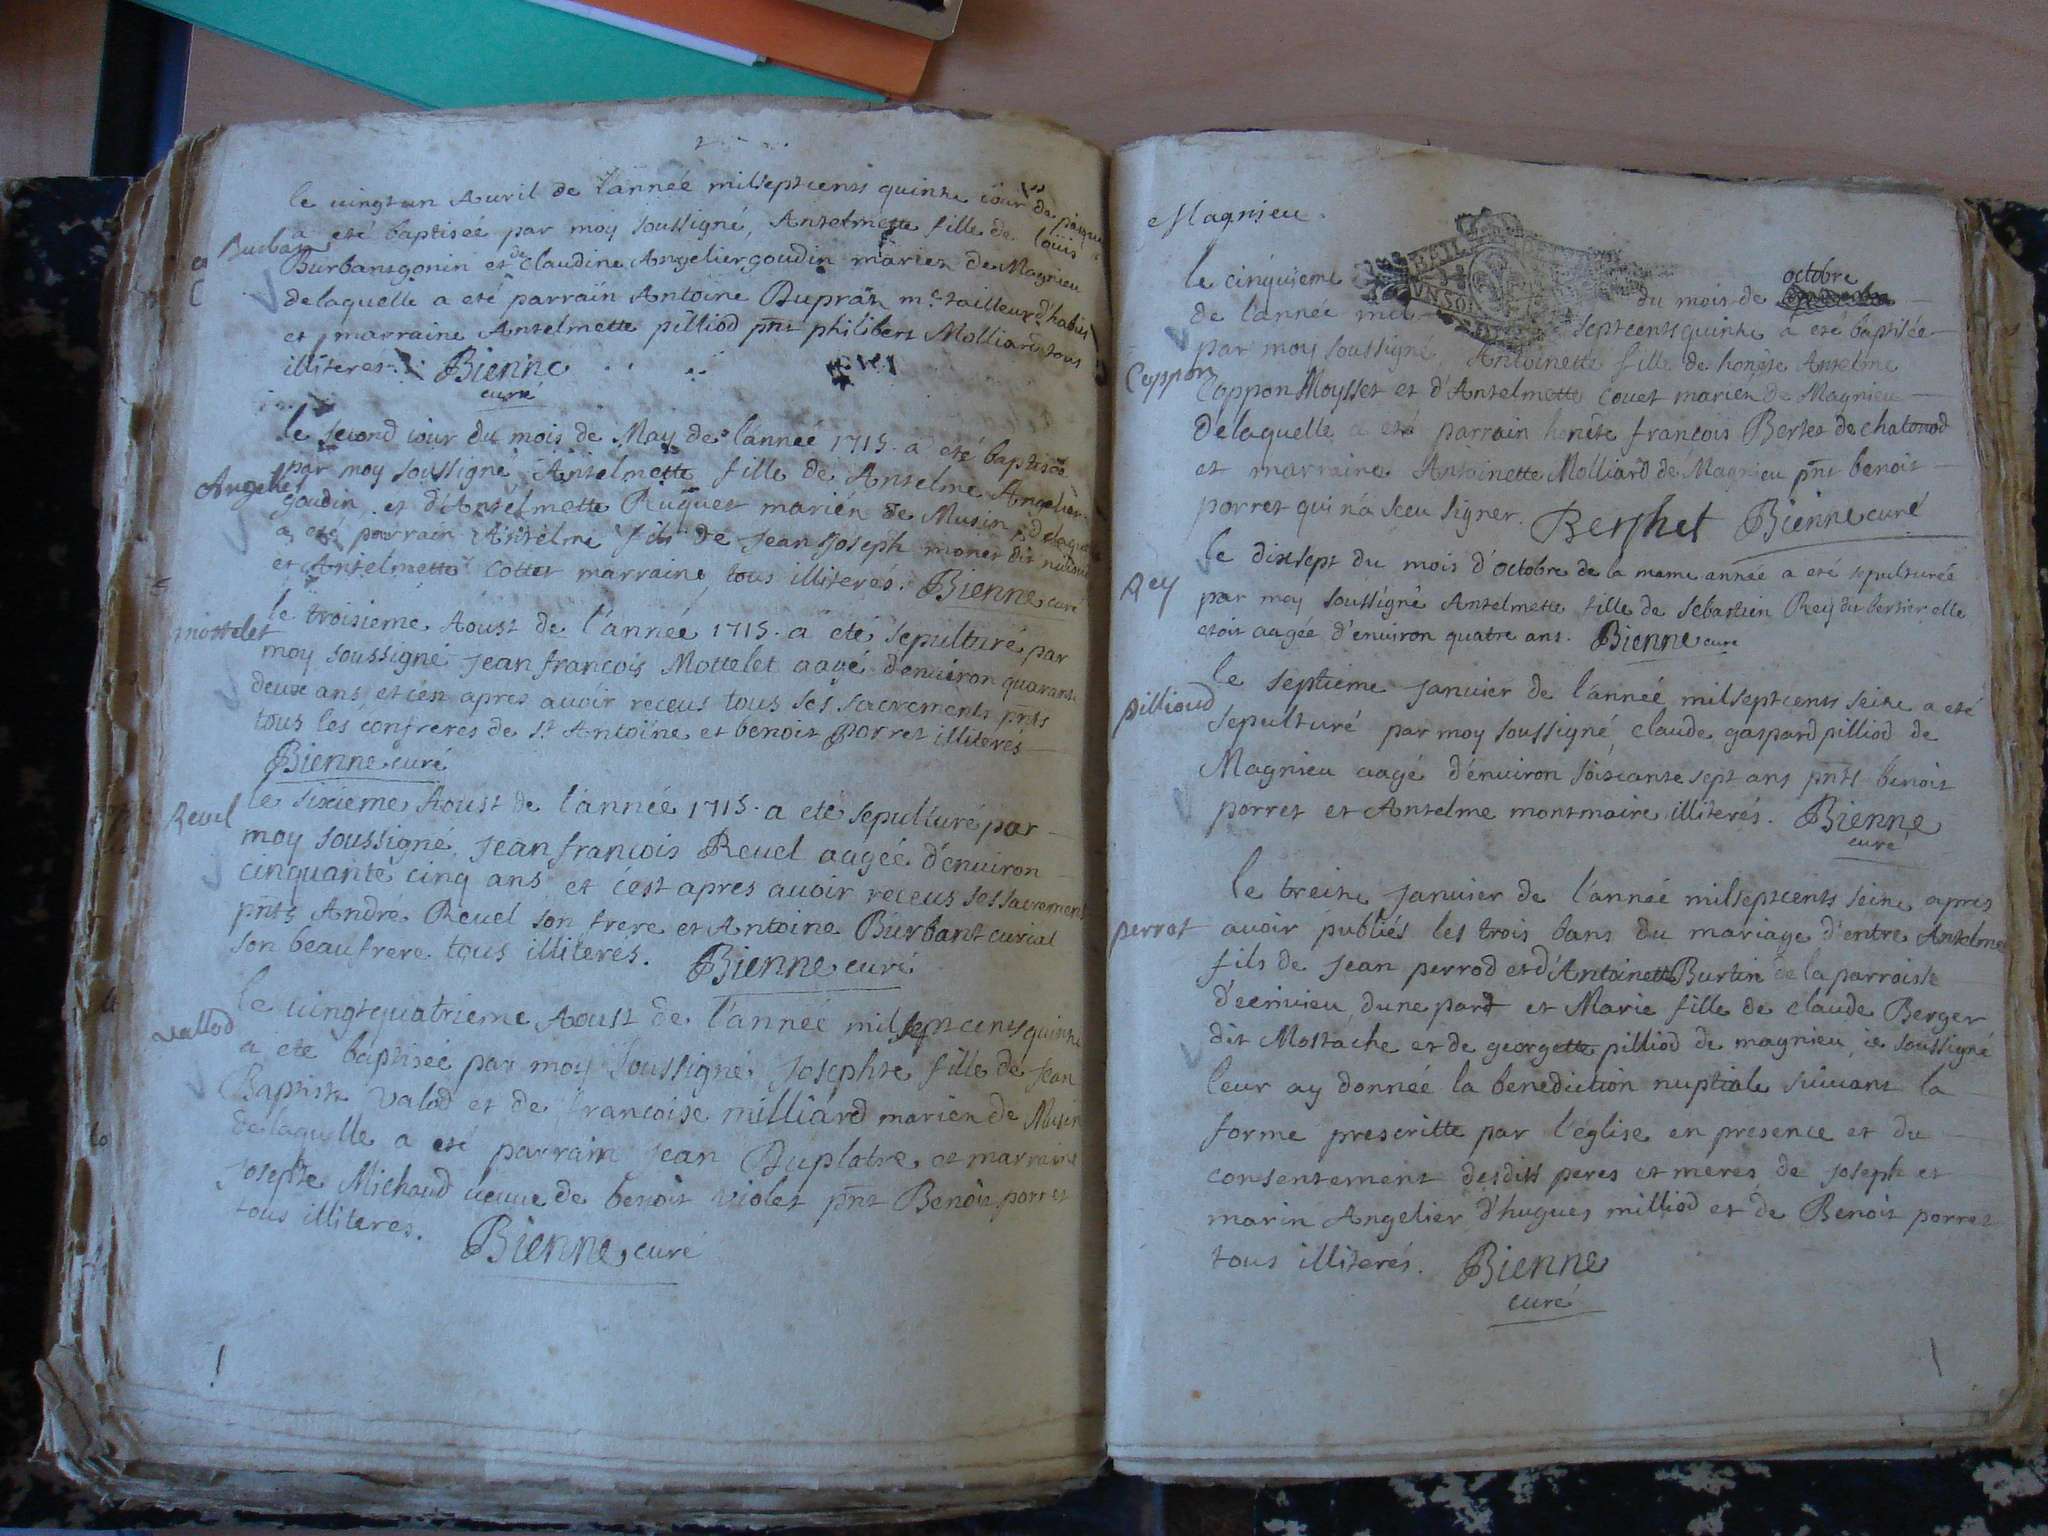 le vingt un Auril de l'année milseptcents quinze iour de pâques
a eté baptisée par moy soussigné, Antelmette fille de loüis
Burban
Burbantgonin et de claudine Angeliergoudin mariez de Magnieu
delaquelle a eté parrain Antoine Duprat me tailleur d'habits
et marraine Antelmette pilliod pnt philibert Molliard tous
illiterés. Bienne
curé
le second iour du mois de May de l'année 1715. a eté baptisée
par moy soussigné Antelmette fille de Antelme Angelier
Angelier
goudin et d'Antelmette Ruguet mariéz de Musin delaquelle
a eté parrain Antelme fils de Jean Joseph monet dit
et Antelmette Cottet marraine, tous illiterés. Bienne curé
le troisieme Aoust de l'année 1715. a eté sepulturé par
mottelet
moy soussigné Jean françois Mottelet aagé d'enuiron quarante
deux ans, et c'est apres auoir receus tous ses sacrements pnts
tous les confreres de St Antoine et benoit porret illiterés
Bienne curé
le sixieme Aoust de l'année 1715. a eté sepulturé par
Reuel
moy soussigné Jean françois Reuel aagéé d'enuiron
cinquante cinq ans et c'est apres auoir receus ses sacrements
pnts André Reuel son frere et Antoine Burbant curial
son beaufrere tous illiterés. Bienne curé
le uingtquatrieme Aoust de l'année milseptcents quinze
vallod
a eté baptisée par moy soussigné Josephte fille de Jean
Baptiste valod et de francoise milliard mariéz de Musin
delaquelle a eté parrain Jean Duplatre et marraine
Josephte Michaud ueuue de benoit violet pnt Benoit porret
tous illiteres. Bienne curé
Magnieu.
BAIL
VNSOL
le cinquieme du mois de octobre
de l'année mil septcentsquinze a eté baptisée
par moy soussigné Antoinette fille de honete Antelme
Cappon Moysset et d'Antelmette Couet mariéz de Magnieu
Delaquelle a eté parrain honete françois Bertet de chatonod
et marraine Antoinette Molliard de Magnieu pnt benoit
porret qui n'a sceu signer. Berthet Bienne curé
le dixsept du mois d'octobre de la meme année a eté sepulturée
Rey
par moy soussigné Antelmette fille de sebastien Rey dit bertier elle
etoit aagée d'enuiron quatre ans. Bienne curé
le septieme Januier de l'année milseptcents seize a eté
pillioud
sepulturé par moy soussigné, claude gaspard pilliod de
Magnieu aagé d'enuiron soixante sept ans pnts benoit
porret et Antelme montmaire illiterés. Bienne
curé
le treize Januier de l'année milseptcents seize apres
perrot
auoir publiés les trois bans du mariage d'entre Antelme
fils de Jean perrod et d'Antoinette Burtin de la parroisse
d'une part et Marie fille de claude Berger
dit Mostache et de georgette pilliod de magnieu, ie soussigné
leur ay donnéé la benediction nuptiale suiuant la
forme prescritte par l'église en presence et du
consentement desdits peres et meres, de Joseph et
marin Angelier d'hugues milliod et de Benoit porret
tous illiterés. Bienne
curé